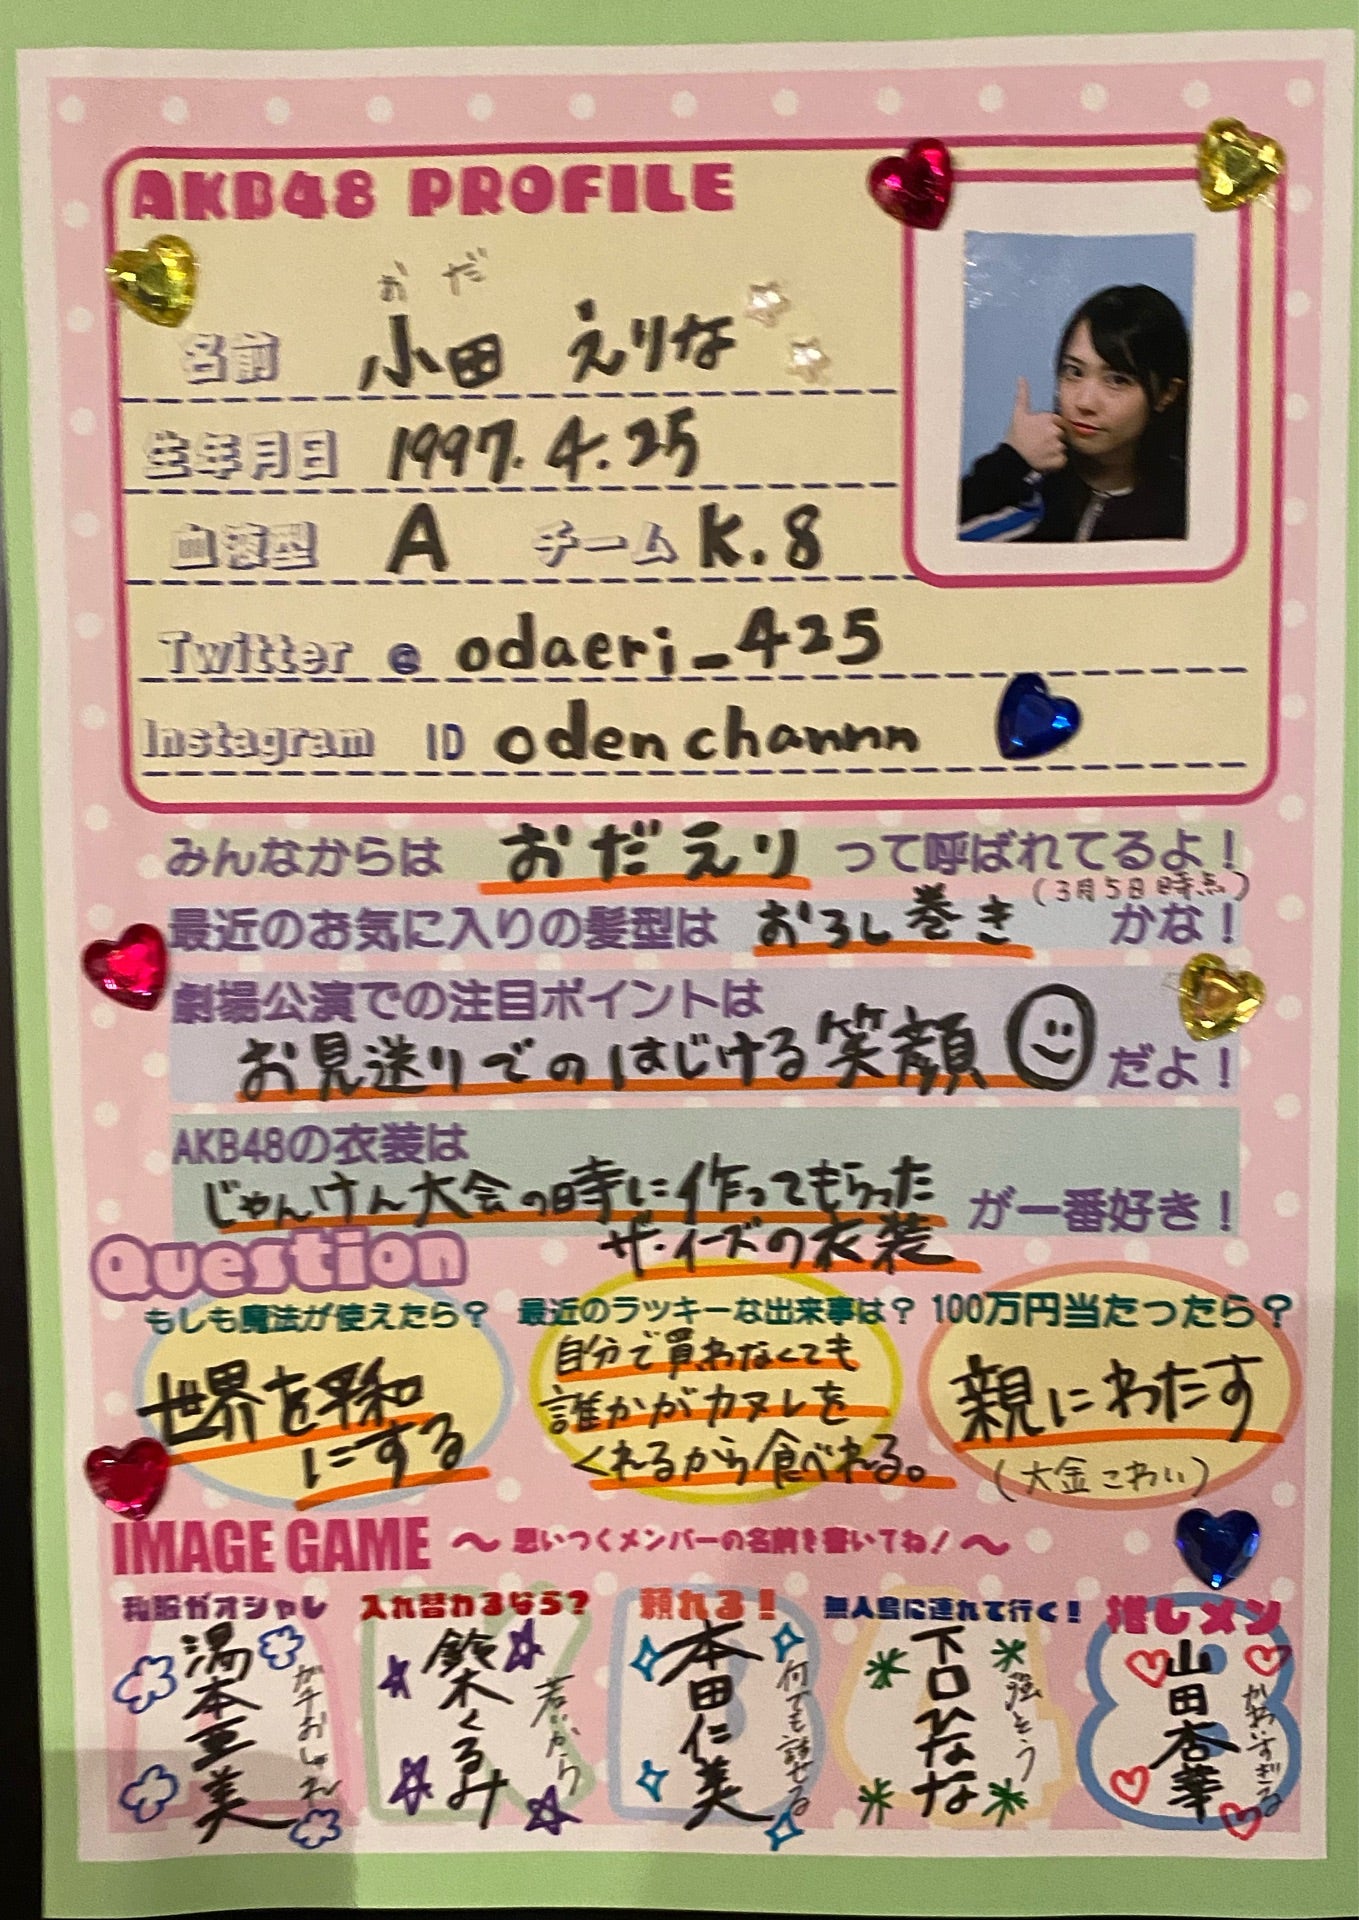 AKB48 PROFILE
おだ
名前 小田 えりな
生年月日 1997.4.25
血液型 A チーム K.8
Twitter @ odaeri_425
Instagram ID odenchannnn
みんなからは おだえり って呼ばれてるよ!
(3月5日時点)
最近のお気に入りの髪型は おろし巻き かな!
劇場公演での注目ポイントは
お見送りでのはじける笑顔 だよ!
AKB48の衣装は
じゃんけん大会の時に作ってもらった が一番好き!
ザ・イーズの衣装
Question
もしも魔法が使えたら?
世界を平和
にする
最近のラッキーな出来事は?
自分で買わなくても
誰かがカヌレを
くれるから食べれる。
100万円当たったら?
親にわたす
(大金こわい)
IMAGE GAME ~思いつくメンバーの名前を書いてね!~
私服がオシャレ
湯本亜美
ガチおしゃれ
入れ替わるなら?
鈴木くるみ
若いから
頼れる!
本田仁美
何でも話せる
無人島に連れて行く!
下口ひなな
強そう
推しメン
山田杏華
かわいすぎる